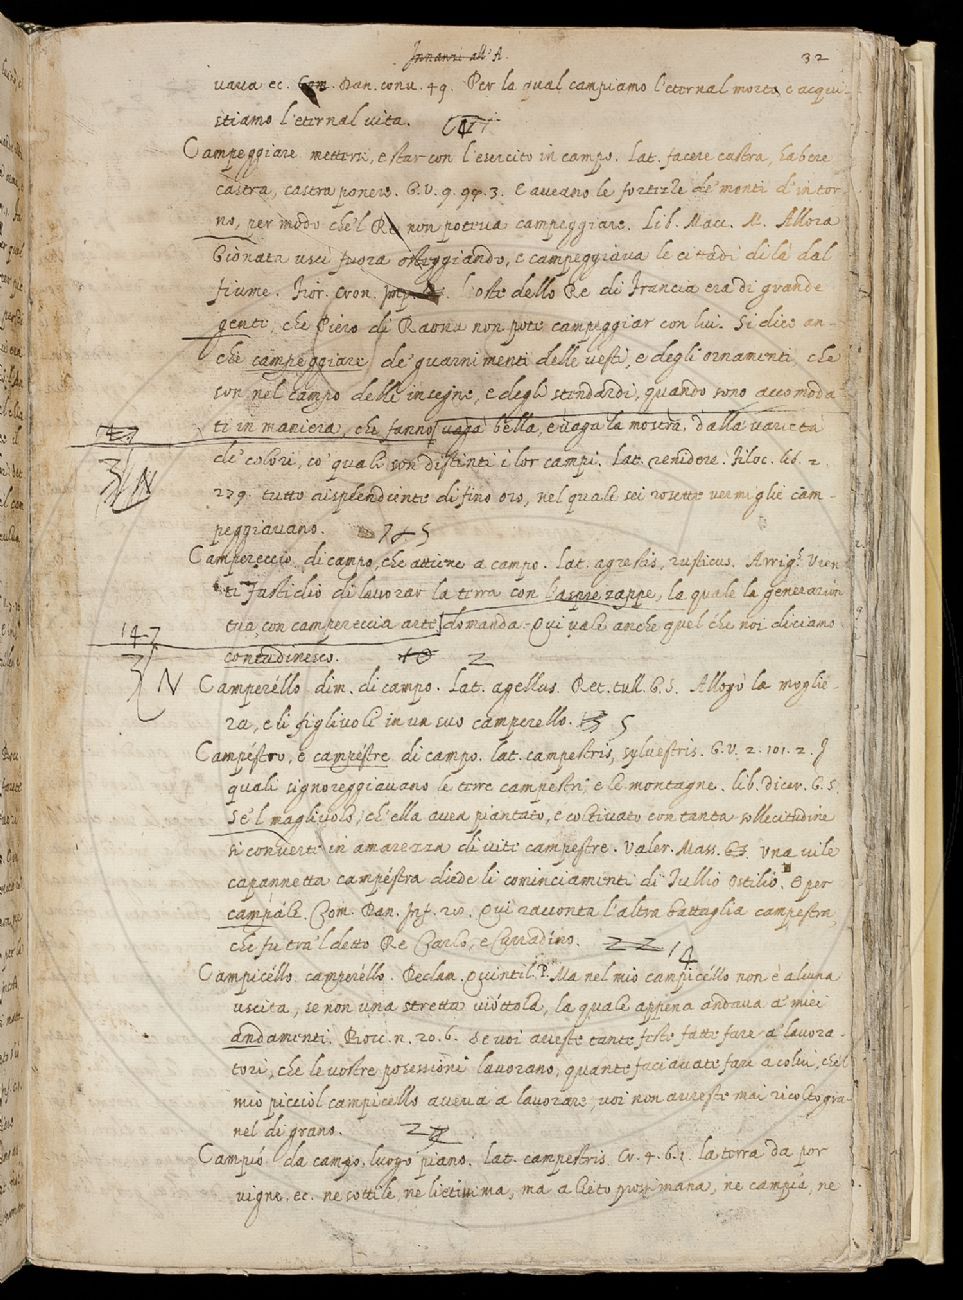 Innanzi all'A. 32
uaua ec. Com. Dan. conu. 49. Per la qual campiamo l'eternal morte, e acqui-
stiamo l'eternal vita.
Campeggiare mettersi, e star con l'esercito in campo. Lat. facere castra, habere
castra, castra ponere. G. V. 9. 3. E aueano le fortezze de' monti d'intor-
no, per modo che 'l Re non poteua campeggiare. Lib. Macc. M. Allora
Gionata uscì fuora osteggiando, e campeggiaua le cittadi di là dal
fiume. Fior. Cron. l'oste dello Re di Francia era di grande
gente, che Piero di Raona non pote campeggiar con lui. Si dice an-
che campeggiare de' guarnimenti delle uesti, e degli ornamenti, che
son nel campo delle insegne, e degli stendardi, quando sono accomoda-
ti in maniera, che fanno uaga bella, e uaga la mostra, dalla varietà
de' colori, co' quali son distinti i lor campi. Lat. renidere. Filoc. lib. 2.
279. tutto risplendiente di fino oro, nel quale sei rosette vermiglie cam-
peggiauano. 745
3/N
Campereccio, di campo, che attiene a campo. Lat. agrestis, rusticus. Arrigh. Vien-
ti fastidio di lauorar la terra con l'aspre zappe, la quale la generazion
tua, con campereccia arte domanda. Qui uale anche quel che noi diciamo
147
contadinesco. 10 2
3/N
Camperéllo dim. di campo. Lat. agellus. Ret. tull. G. S. Allogò la moglie-
ra, e li figliuoli in un suo camperello. 13 5
Campéstro, e campéstre di campo. lat. campestris, sylvestris. G. V. 2. 101. 2. I
quali signoreggiauano le terre campestri, e le montagne. lib. dicer. G. S.
Se 'l magliuolo, ch'ella avea piantato, e coltiuato con tanta sollecitudine
si conuerte in amarezza di vite campestre. Valer. Mass. Una uile
capannetta campéstra diede li cominciamenti di Tullio Ostilio. O per
campále. Com. Dan. Inf. 20. Qui racconta l'altra battaglia campestra,
che fu tra 'l detto Re Carlo, e Curradino. 22 14
Campicéllo camperéllo. Declam. Quintil. P. Ma nel mio campicéllo non è alcuna
uscita, se non una stretta vióttola, la quale appena andaua a' miei
andamenti. Bocc. n. 20. 6. Se voi aueste tante feste fatte fare a' lauora-
tori, che le vostre posessioni lauorano, quante faciauate fare a colui, che 'l
mio picciol campicello aueua a lauorare, uoi non aureste mai ricolto gra-
nel di grano. 27
Campío da campo, luogo piano. lat. campestris. Cr. 4. 6. 1. la terra da por
vigne, ec. ne sottile, ne lietissima, ma a lieto prossimana, ne campía, ne